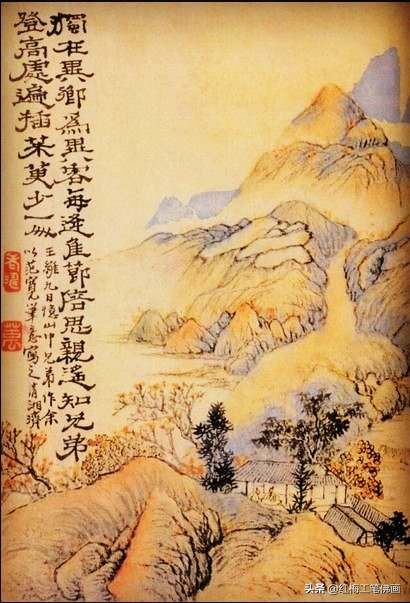 獨在異鄉為異客每逢佳節陪思親遙知兄弟
登高處遍插茱萸少一人
王維九日憶山中兄弟作余
以范寬筆意寫之清湘濟
头条 @红梅工笔佛画